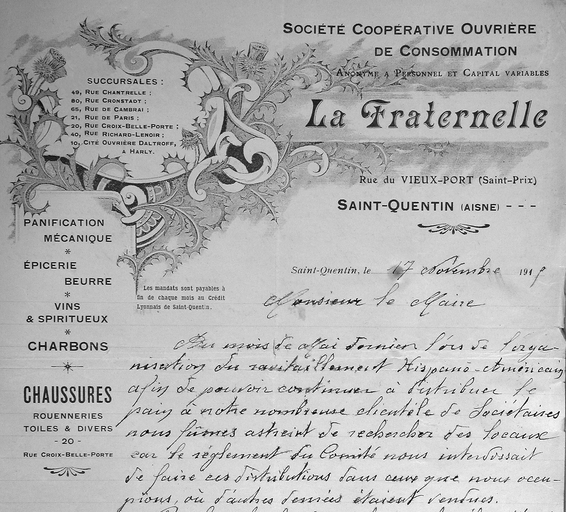 SOCIÉTÉ COOPÉRATIVE OUVRIÈRE
DE CONSOMMATION
ANONYME A PERSONNEL ET CAPITAL VARIABLES
La Fraternelle
Rue du VIEUX-PORT (Saint-Prix)
SAINT-QUENTIN (AISNE) - - -
SUCCURSALES :
49, RUE CHANTRELLE ;
80, RUE CRONSTADT ;
65, RUE DE CAMBRAI ;
21, RUE DE PARIS ;
20, RUE CROIX-BELLE-PORTE ;
40, RUE RICHARD-LENOIR ;
10, CITÉ OUVRIÈRE DALTROFF,
A HARLY.
PANIFICATION
MÉCANIQUE
*
ÉPICERIE
BEURRE
*
VINS
& SPIRITUEUX
*
CHARBONS
*
CHAUSSURES
ROUENNERIES
TOILES & DIVERS
- 20 -
RUE CROIX-BELLE-PORTE
Les mandats sont payables à
fin de chaque mois au Crédit
Lyonnais de Saint-Quentin.
Saint-Quentin, le 17 Novembre 191
Monsieur le Maire
Au mois de Mai dernier lors de l'orga
nisation du ravitaillement Hispano-Américain
afin de pouvoir continuer à distribuer le
pain à notre nombreuse clientèle de Sociétaires
nous fûmes astreint de rechercher des locaux
car le règlement du Comité nous interdissait
de faire ces distributions dans ceux que nous occu-
pions, où d'autres denrées étaient vendues.